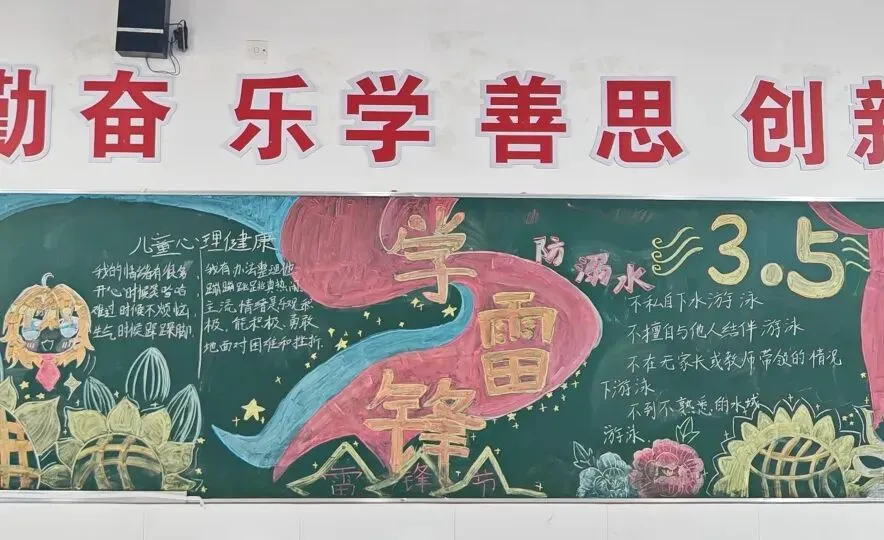 勤奋 乐学 善思 创新
儿童心理健康
我的情绪有很多
开心时候笑哈哈
难过时候不烦忧
生气时候跺跺脚
我有办法整理他
蹦蹦跳跳真热闹
主流情绪是乐观积
极,能积极、勇敢
地面对困难和挫折.
学
雷
锋
雷锋节
防溺水
3.5
不私自下水游泳
不擅自与他人结伴游泳
不在无家长或教师带领的情况
下游泳
不到不熟悉的水域
游泳.